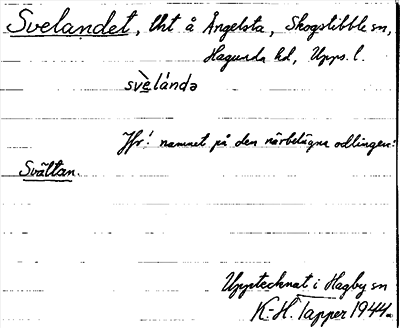 Svelandet, lht å Ångelsta, Skogstibble sn,
Hagunda hd, Upps. l.
svè̱lándə
Jfr! namnet på den närbelägna odlingen:
Svältan.
Upptecknat i Hagby sn
K.-H. Tapper 1944.